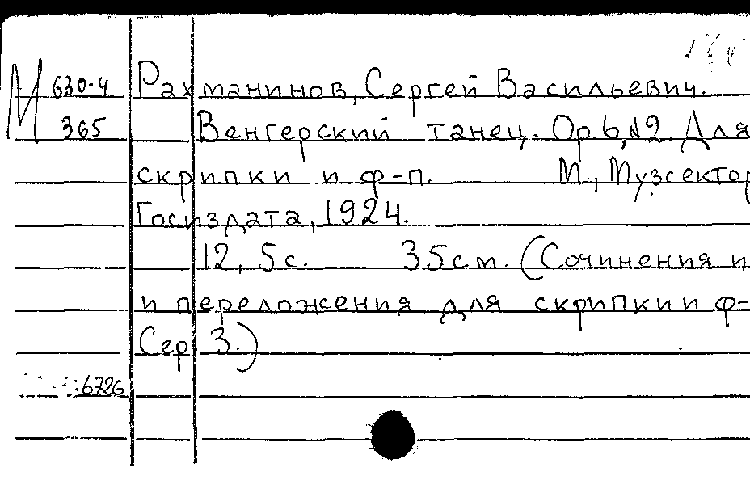 М 630-4 Рахманинов, Сергей Васильевич.
365 Венгерский танец. Op 6, №2 Для
скрипки и ф-п. М., Музсектор
Госиздата, 1924.
12, 5с. 35см. (Сочинения и
и переложения для скрипки и ф-
Сер 3.)
6726